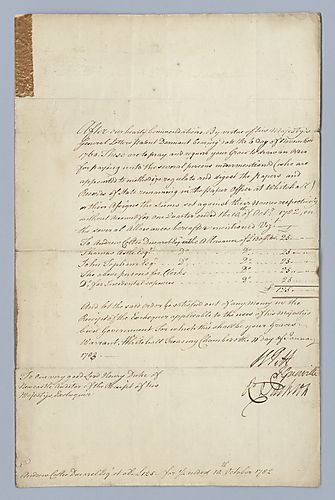 After our hearty Commendations. By virtue of his Majesty's
General Letters Patent Dormant bearing date the 6 Day of December
1760. These are to pray and require your Grace to draw an Order
for paying unto the several persons undermentioned (who are
appointed to methodize regulate and digest the papers and
Records of State remaining in the Paper Office at Whitehall)
or their Assigns the Sums set against their Names respectively
without Account for one Quarter ended the 10 of Octr. 1782, on
the several Allowances hereafter mentioned Vizt.
To Andrew Coltee Ducarel Esq. on the Allowance 25
Thomas Astle Esq. Do. Do. 25
John Topham Esq. Do. Do. 25
The above persons for Clerks Do. 25
Do. for Incidental expences Do. 25
£ 125
And let the said order be satisfied out of any Money in the
Receipt of the Exchequer applicable to the uses of his Majesty's
Civil Government For which this shall be your Graces
Warrant. Whitehall Treasury Chambers the Day of January
1783
W Pitt
To our very good Lord Henry Duke of
Newcastle Auditor of the Receipt of his
Majesty's Exchequer
Andrew Coltee Ducarel Esq. et al. £125 for ended 10th October 1782